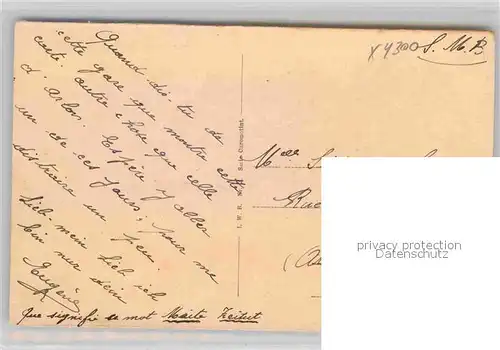 x 4300 S. M. B
Quand dis-tu de
cette gare que montre cette
carte autre chose que celle
d'Arlon. Espère y aller
un de ces jours, pour me
distraire un peu.
Lieb mein Lieb ich
bin nur dein
Eugène
Que signifie ce mot Maite Zeitest
Mlle
Rue
privacy protection
Datenschutz